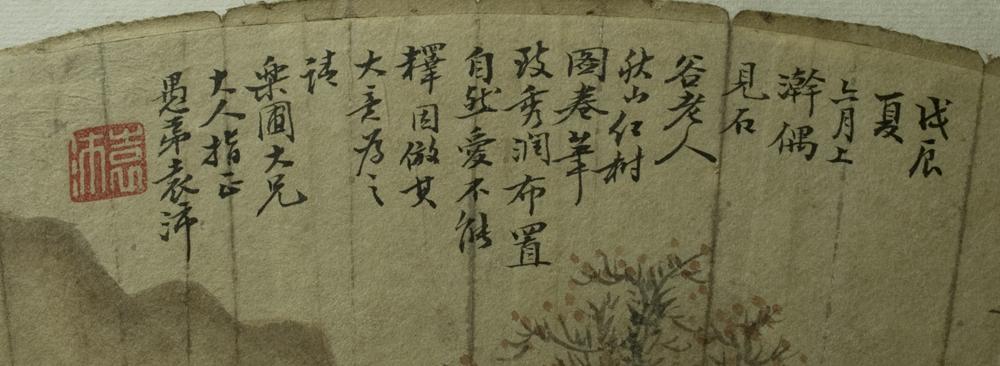 戊辰
夏
六月上
澣偶
見石
谷老人
秋山红树
圖卷筆
致秀润布置
自然愛不能
釋因倣其
大意为之
請
樂圃大兄
大人指正
愚弟袁沛
袁沛